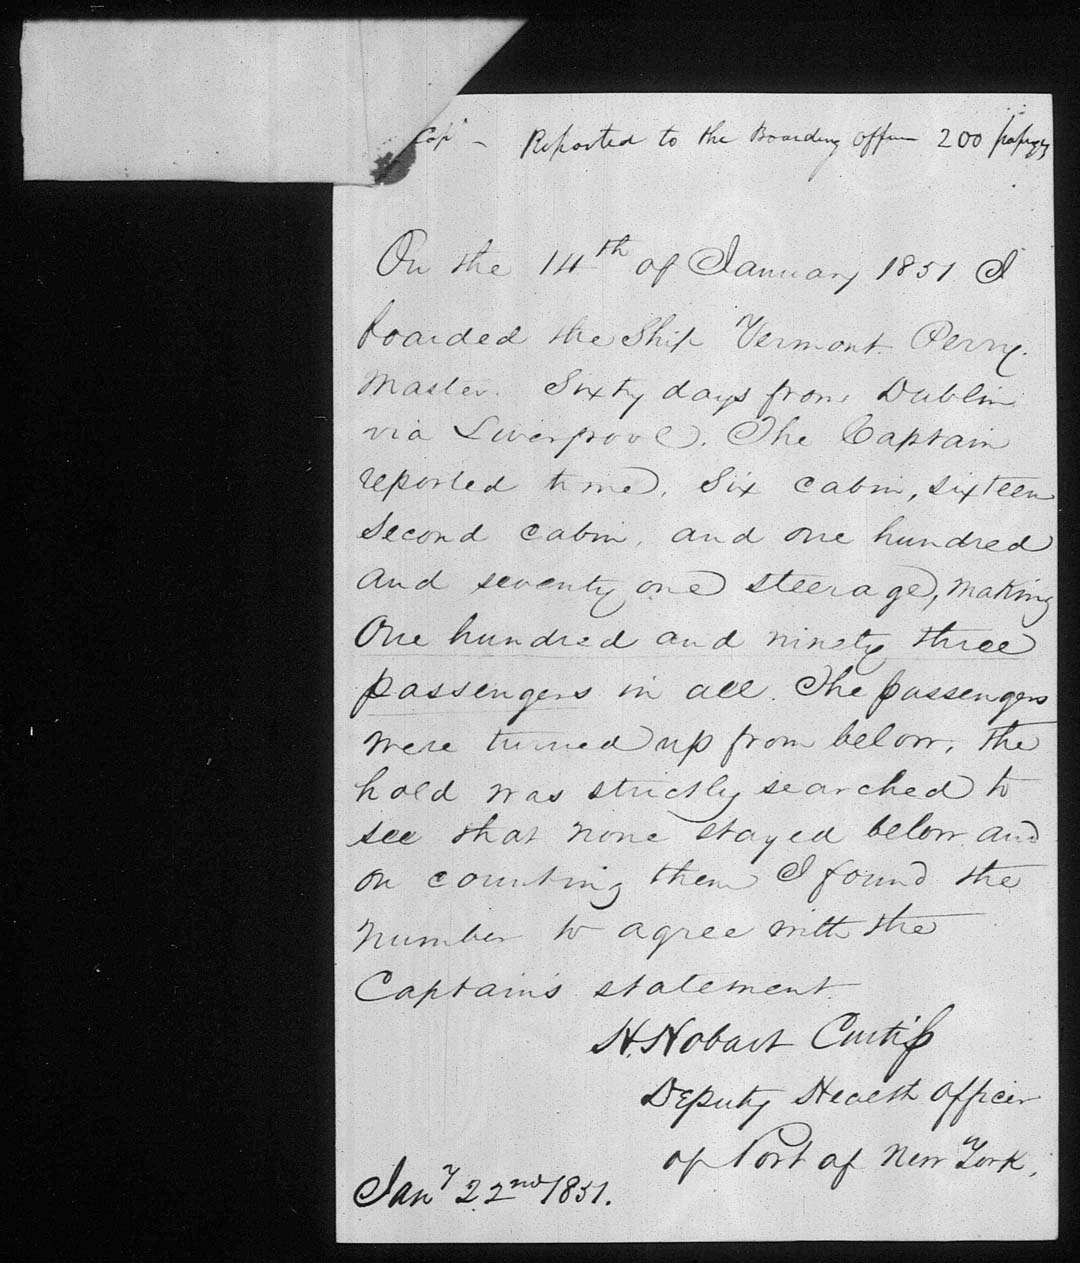 Capt - Reported to the Boarding officer 200 passgrs
On the 14th of January 1851 I
boarded the Ship Vermont. Perry.
Master. Sixty days from Dublin
via Liverpool. The Captain
reported time. Six cabin, sixteen
second cabin, and one hundred
and seventy one steerage, making
One hundred and ninety three
passengers in all. The passengers
were turned up from below, the
hold was strictly searched to
see that none stayed below and
on counting them I found the
number to agree with the
Captain's statement
H. Hobart Curtiss
Deputy Health officer
of Port of New York,
Jany 22nd 1851.